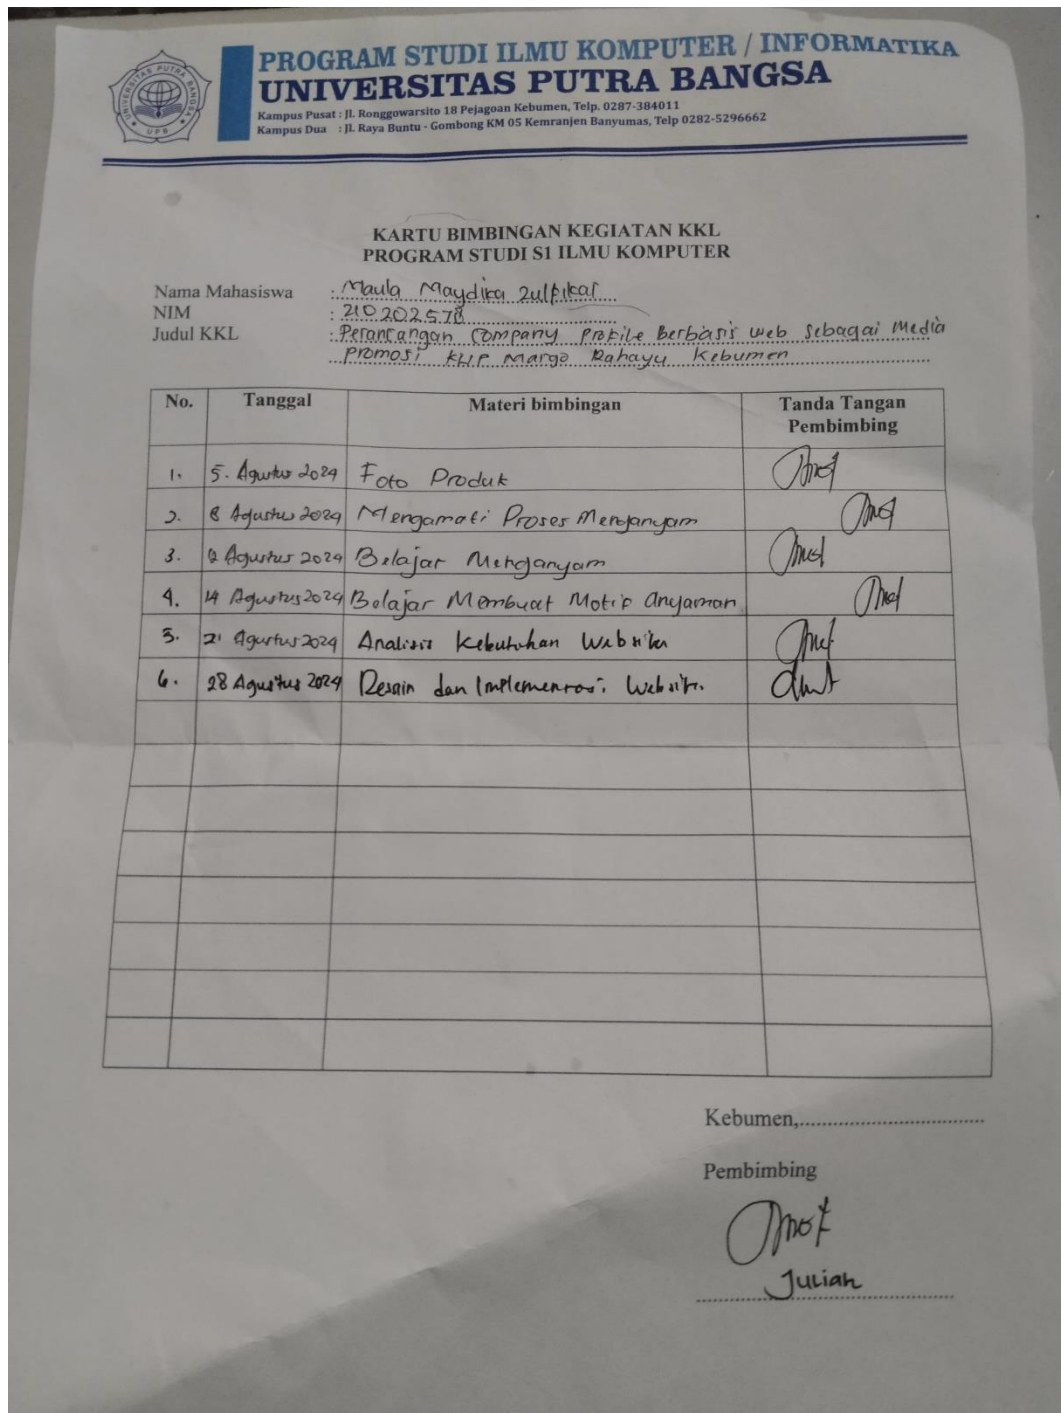 PROGRAM STUDI ILMU KOMPUTER / INFORMATIKA
UNIVERSITAS PUTRA BANGSA
Kampus Pusat : Jl. Ronggowarsito 18 Pejagoan Kebumen, Telp. 0287-384011
Kampus Dua : Jl. Raya Buntu - Gombong KM 05 Kemranjen Banyumas, Telp 0282-5296662
UNIVERSITAS PUTRA BANGSA
UPB
KARTU BIMBINGAN KEGIATAN KKL
PROGRAM STUDI S1 ILMU KOMPUTER
Nama Mahasiswa : Maula Maydika Zulfikar
NIM : 210202578
Judul KKL : Perancangan Company Profile Berbasis web Sebagai Media
Promosi Margo Rahayu Kebumen
No. Tanggal Materi bimbingan Tanda Tangan Pembimbing
1. 5. Agustus 2024 Foto Produk
2. 8 Agustus 2024 Mengamati Proses Menganyam
3. Agustus 2024 Belajar Menganyam
4. 14 Agustus 2024 Belajar Membuat Motif anyaman
5. 21 Agustus 2024 Analisis Kebutuhan Website
6. 28 Agustus 2024 Desain dan Implementasi Website.
Kebumen,..................................
Pembimbing
Julian